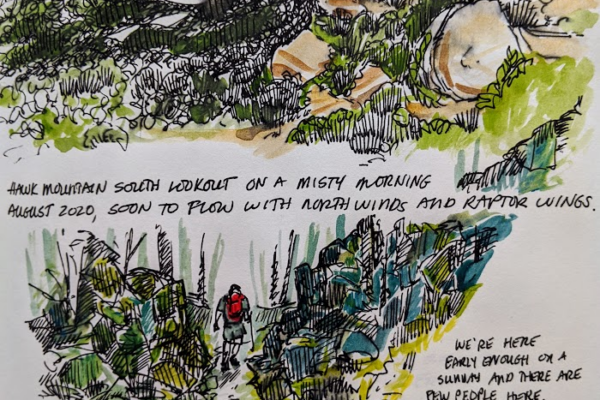 HAWK MOUNTAIN SOUTH LOOKOUT ON A MISTY MORNING
AUGUST 2020, SOON TO FLOW WITH NORTH WINDS AND RAPTOR WINGS.
WE'RE HERE
EARLY ENOUGH ON A
SUNDAY AND THERE ARE
FEW PEOPLE HERE.